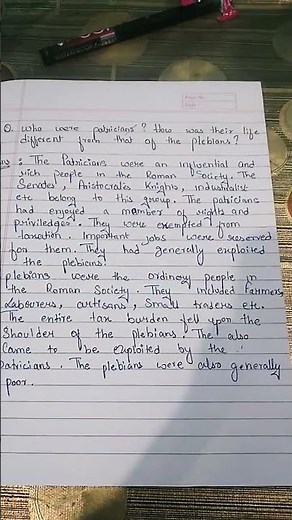 Q. who were patricians? How was their life
different from that of the plebians?
: The Patricians were an influential and
rich people in the Roman Society. The
Senates, Aristocrates Knights, industrialist
etc belong to this group. The patricians
had enjoyed a number of rights and
priviledges. They were exempted from
taxation. Important jobs were reserved
for them. They had generally exploited
the plebians.
plebians were the ordinary people in
the Roman Society. They included Farmers
Labourers, artisans, Small traders etc.
The entire tax burden fell upon the
Shoulder of the plebians. The also
Came to be exploited by the
patricians. The plebians were also generally
poor.